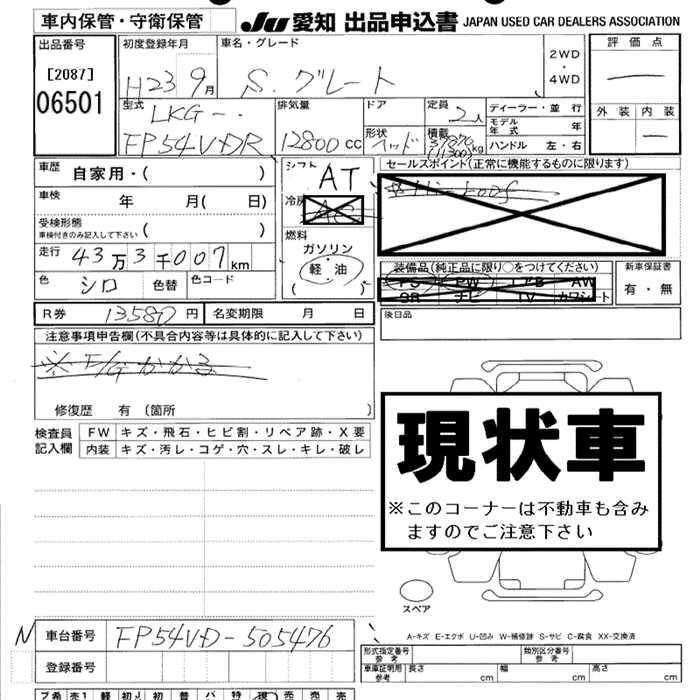 車内保管・守衛保管 JU 愛知 出品申込書 JAPAN USED CAR DEALERS ASSOCIATION
出品番号 初度登録年月 車名・グレード 評価点
[2087] H23 9月 S.グレート 2WD・4WD
06501
型式 排気量 ドア 定員 ディーラー・並行 外装 内装
LKG-・ 2人 モデル年式 年
FP54VDR 12800cc 形状 ヘッド 積載 37070kg (11300) ハンドル 左・右
車歴 自家用・( ) シフト AT セールスポイント(正常に機能するものに限ります)
車検 年 月( 日) 冷房 AC
受検形態 ( )
車検付きのみ記入して下さい
燃料
走行 43万3千007km ガソリン
軽油
装備品(純正品に限り○をつけてください) 新車保証書
色 シロ 色替 色コード PS PW エアB AW 有・無
SR ナビ TV カワシート
R券 13580円 名変期限 月 日 後日品
注意事項申告欄(不具合内容等は具体的に記入して下さい)
※E/Gかかる
修復歴 有 (箇所 )
検査員記入欄 FW キズ・飛石・ヒビ割・リペア跡・X要
内装 キズ・汚レ・コゲ・穴・スレ・キレ・破レ
現状車
※このコーナーは不動車も含み
ますのでご注意下さい
スペア
A-キズ E-エクボ U-凹み W-補修跡 S-サビ C-腐食 XX-交換済
N 車台番号 FP54VD-505476
登録番号
形式指定番号 参考 類別区分番号 参考
車庫証明用 参考 長さ cm 幅 cm 高さ cm